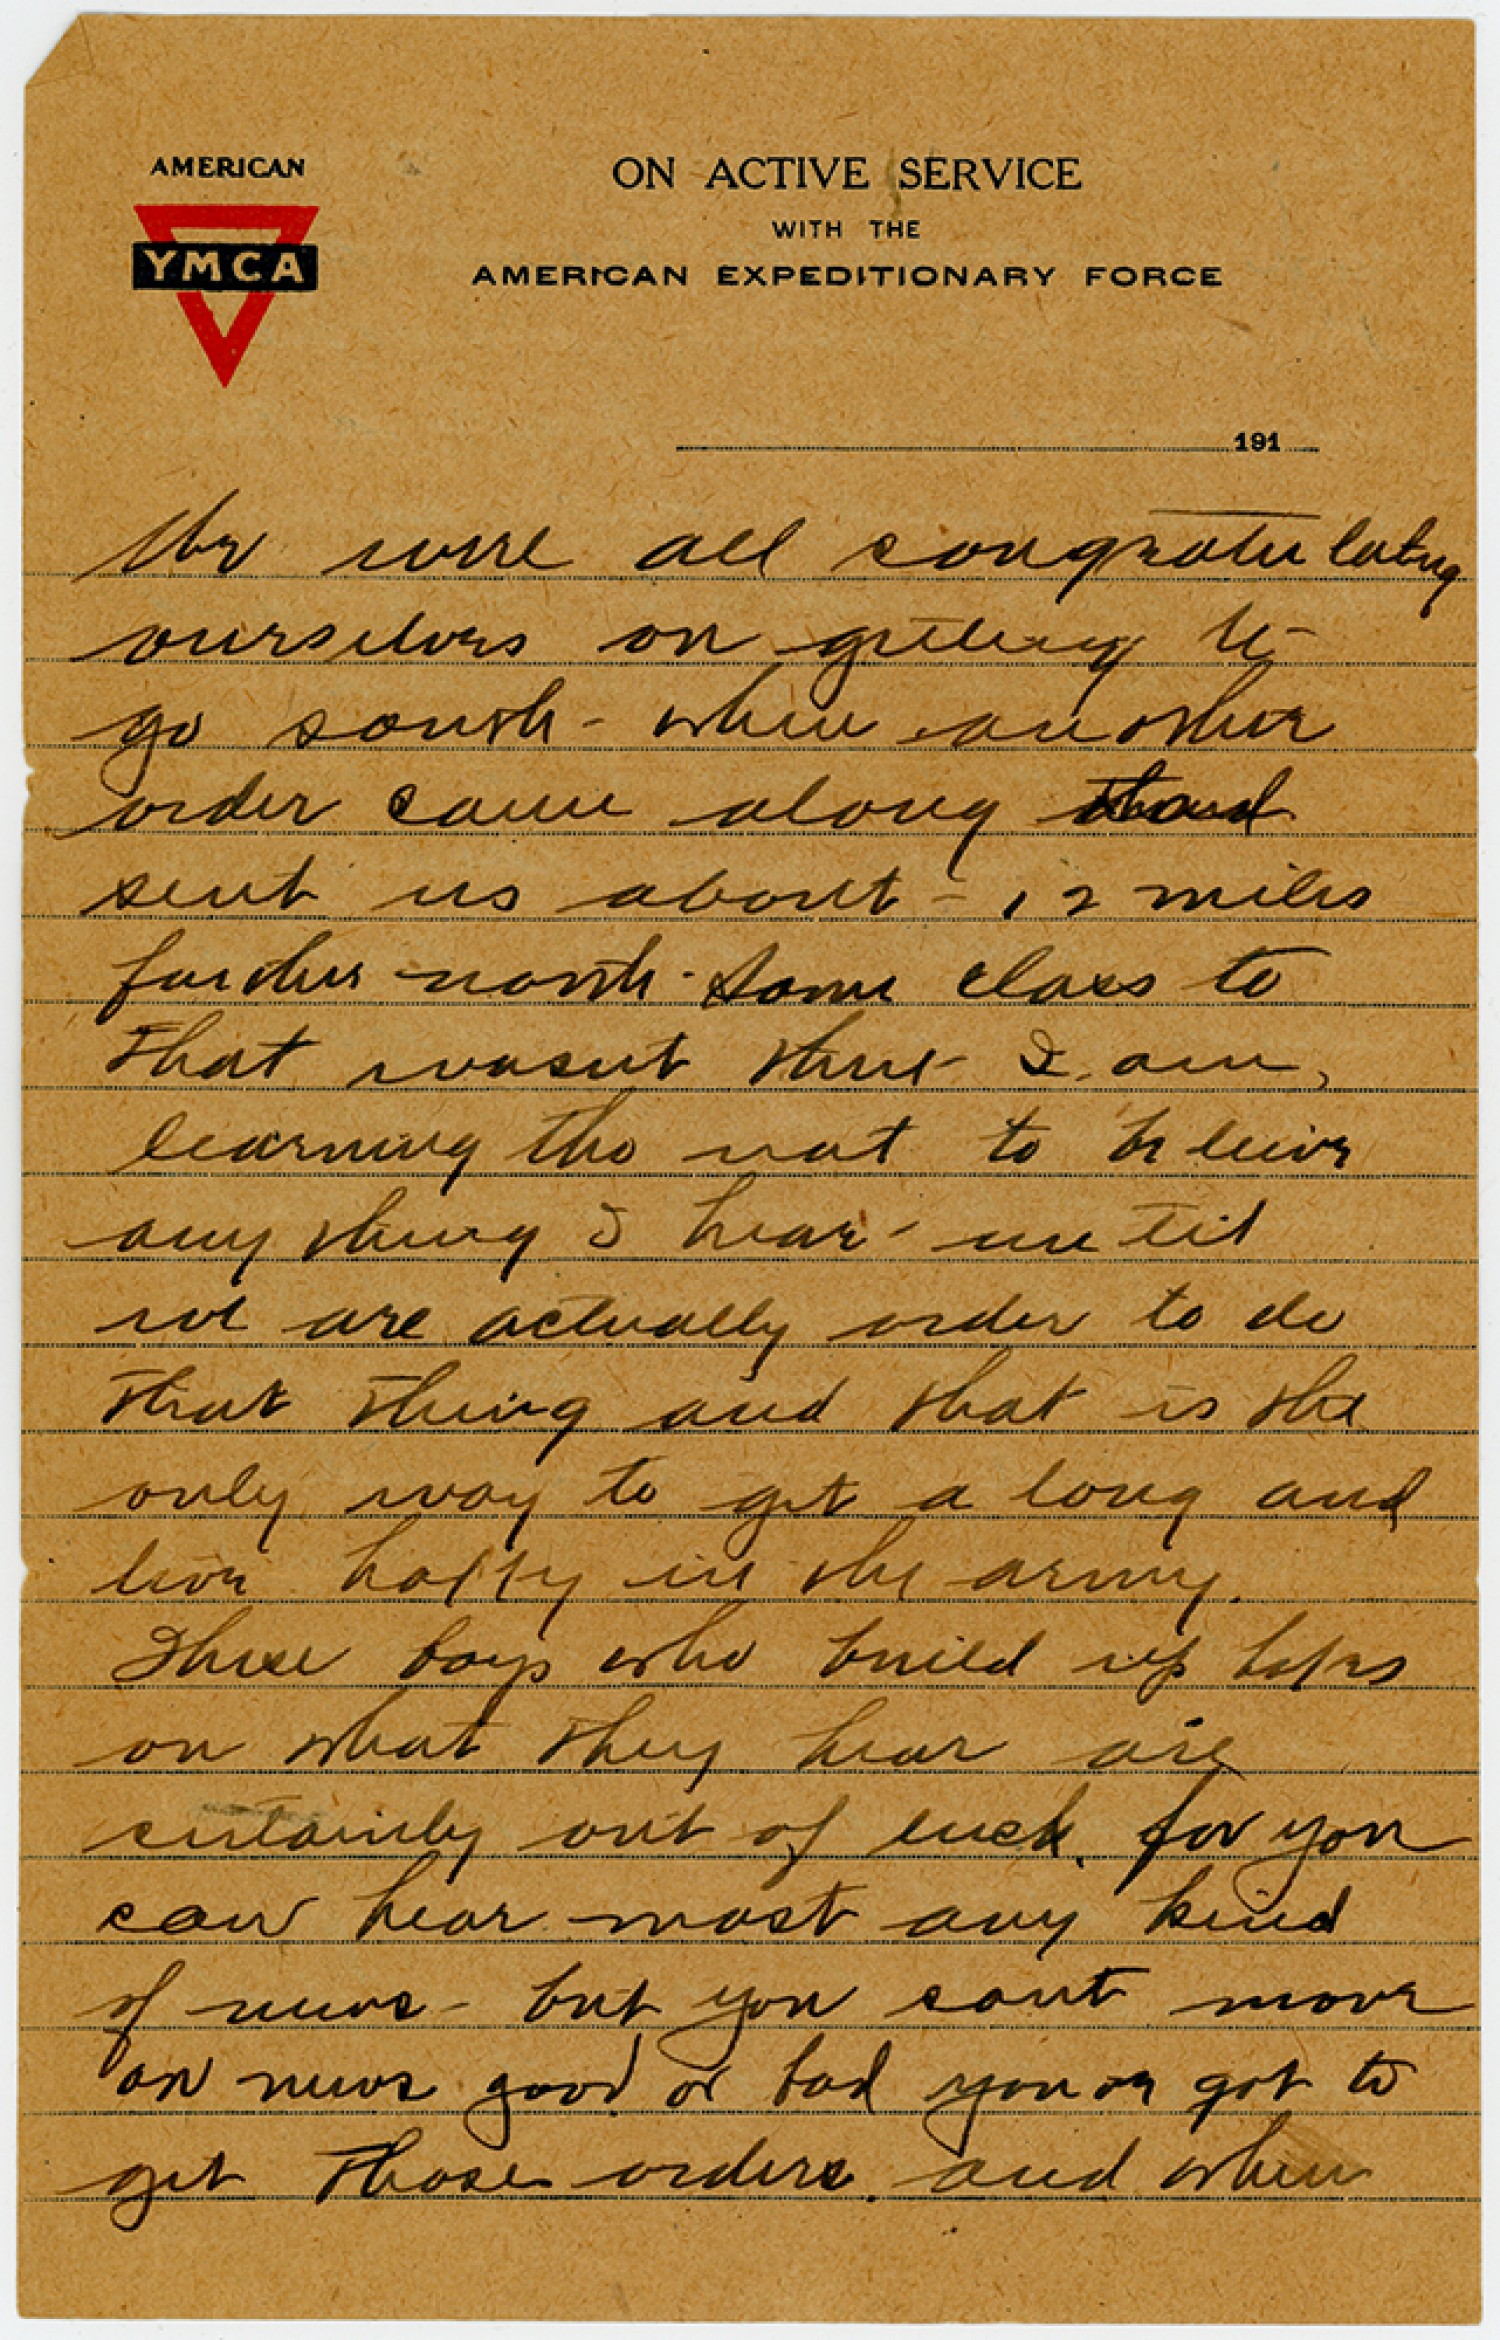 AMERICAN
YMCA
ON ACTIVE SERVICE
WITH THE
AMERICAN EXPEDITIONARY FORCE
191
We were all congratulating
ourselves on getting to
go south - when another
order came along and
sent us about - 12 miles
further north - Some class to
that wasent there - I am,
learning tho not to beleive
any thing I hear - until
we are actually order to do
that thing and that is the
only way to get a long and
live happy in the army.
These boys who build up hopes
on what they hear are
certainly out of luck, for you
can hear most any kind
of news - but you cant move
on news good or bad you on got to
get those orders. and when